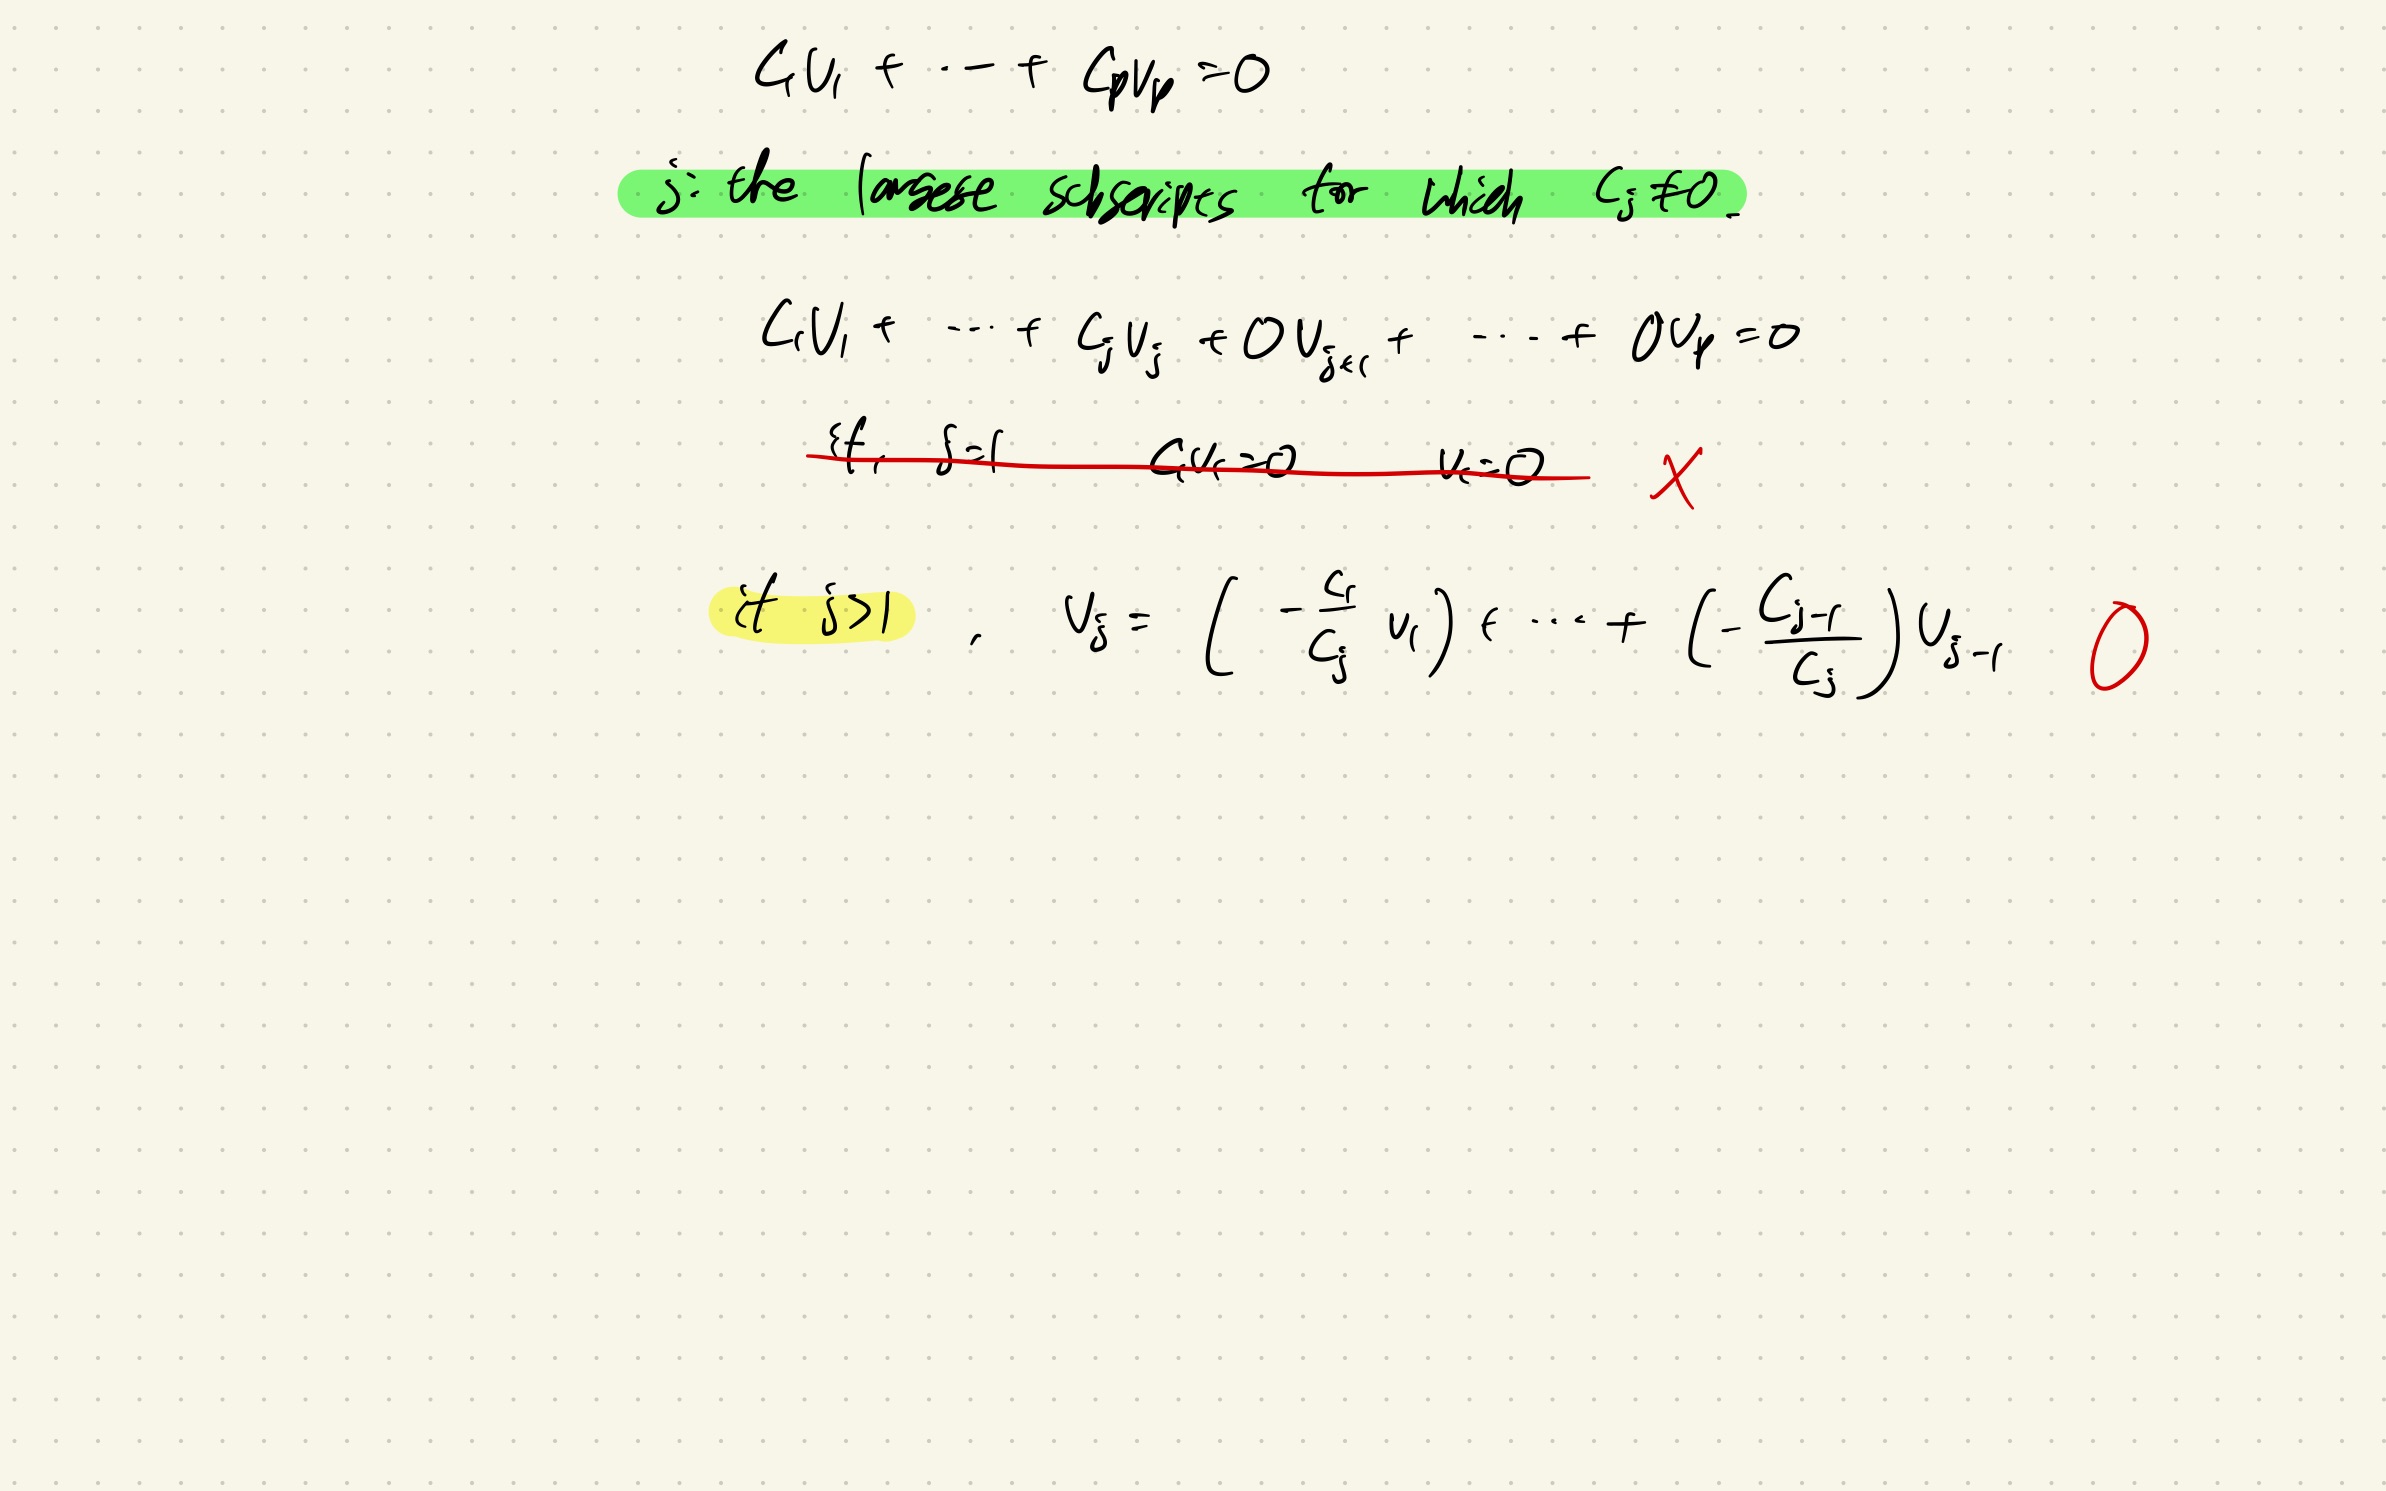 C₁V₁ + ··· + CpVp = 0
j: the largest subscripts for which Cj ≠ 0.
C₁V₁ + ··· + CjVj + 0Vj+1 + ··· + 0Vp = 0
if, j=1 C₁V₁=0 V₁=0 X
if j>1, Vj = (-C₁/Cj V₁) + ··· + (-Cj-1/Cj) Vj-1 O